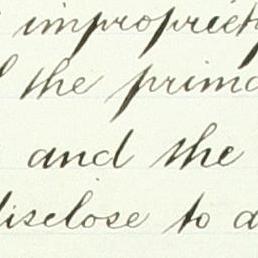 impropriety
the prima
and the
disclose to a